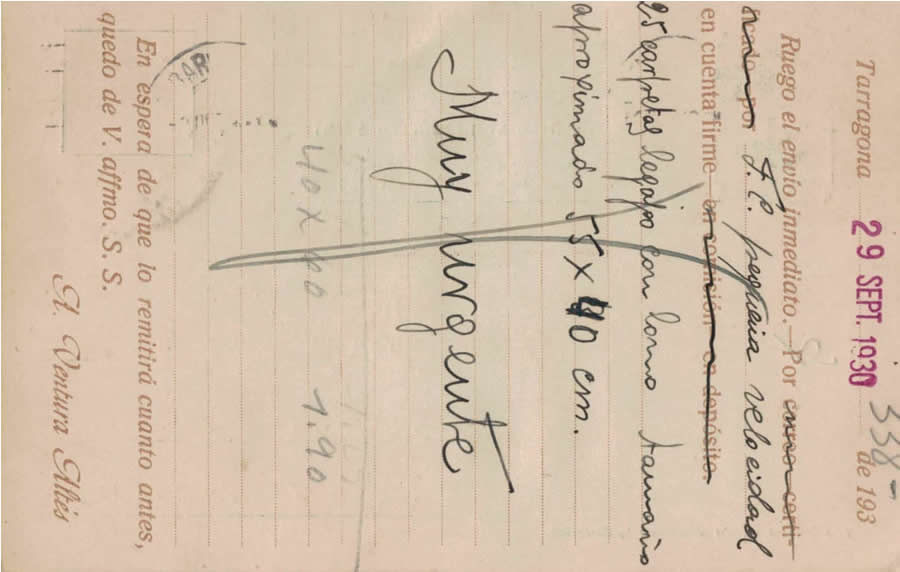 338-
Tarragona 29 SEPT. 1930 de 193
Ruego el envío inmediato.—Por correo certi-
ficado por F. C. pequeña velocidad
en cuenta firme en comisión en depósito.
25 carpetas legajo con lomo tamaño
aproximado 55 x 40 cm.
Muy urgente
40 x 40 1.90
En espera de que lo remitirá cuanto antes,
quedo de V. affmo. S. S.
A. Ventura Altés